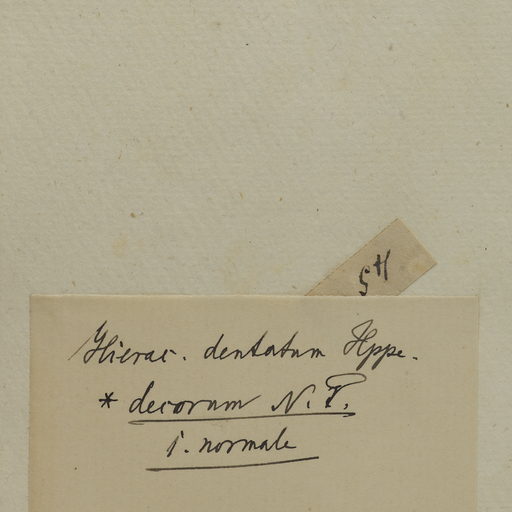 Hierac. dentatum Hppe.
* decorum N. P.
1. normale